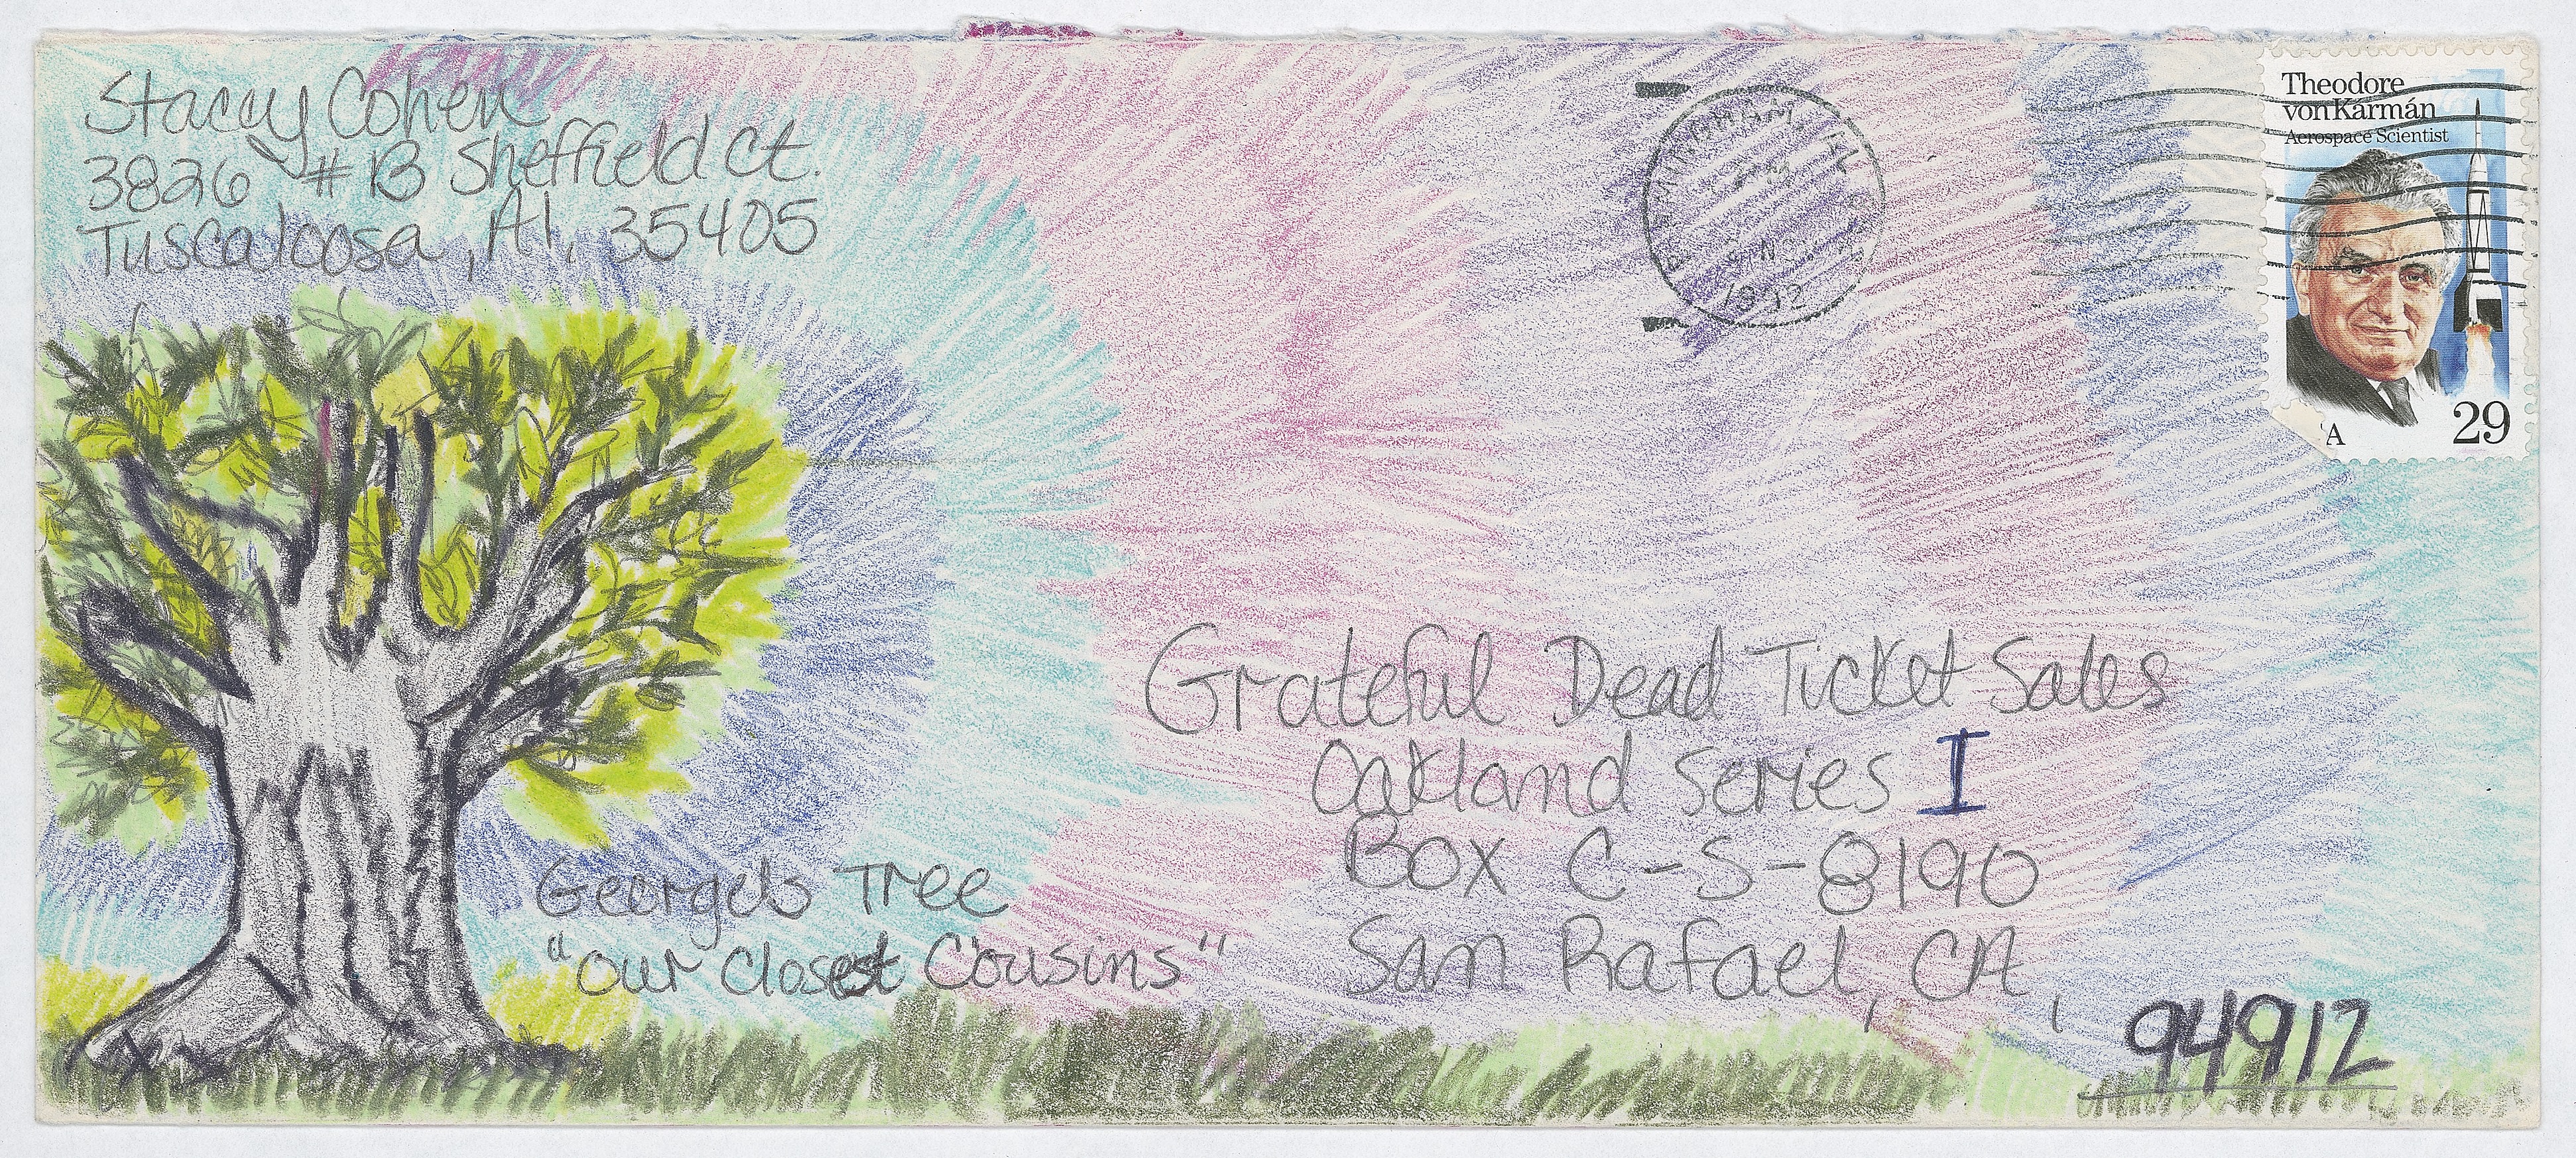 Stacey Cohen
3826 #B Sheffield Ct.
Tuscaloosa, Al, 35405
Theodore
von Kármán
Aerospace Scientist
A
29
Grateful Dead Ticket Sales
Oakland Series I
Box C-S-8190
San Rafael, CA,
94912
George's Tree
"Our Closest Cousins"